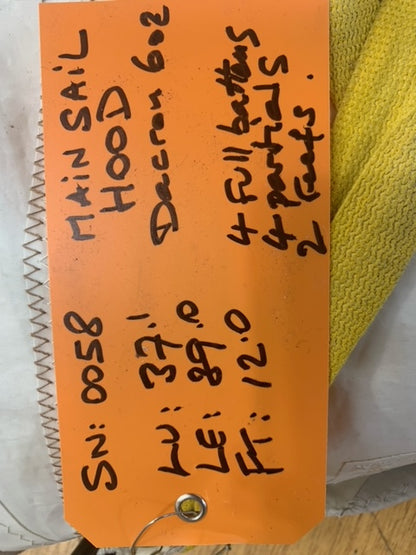 SN: 0058
LU: 37.1
LE: 89.0
FT: 12.0
MAIN SAIL
HOOD
Dacron 6oz
4 Full battens
4 partials
2 reefs.